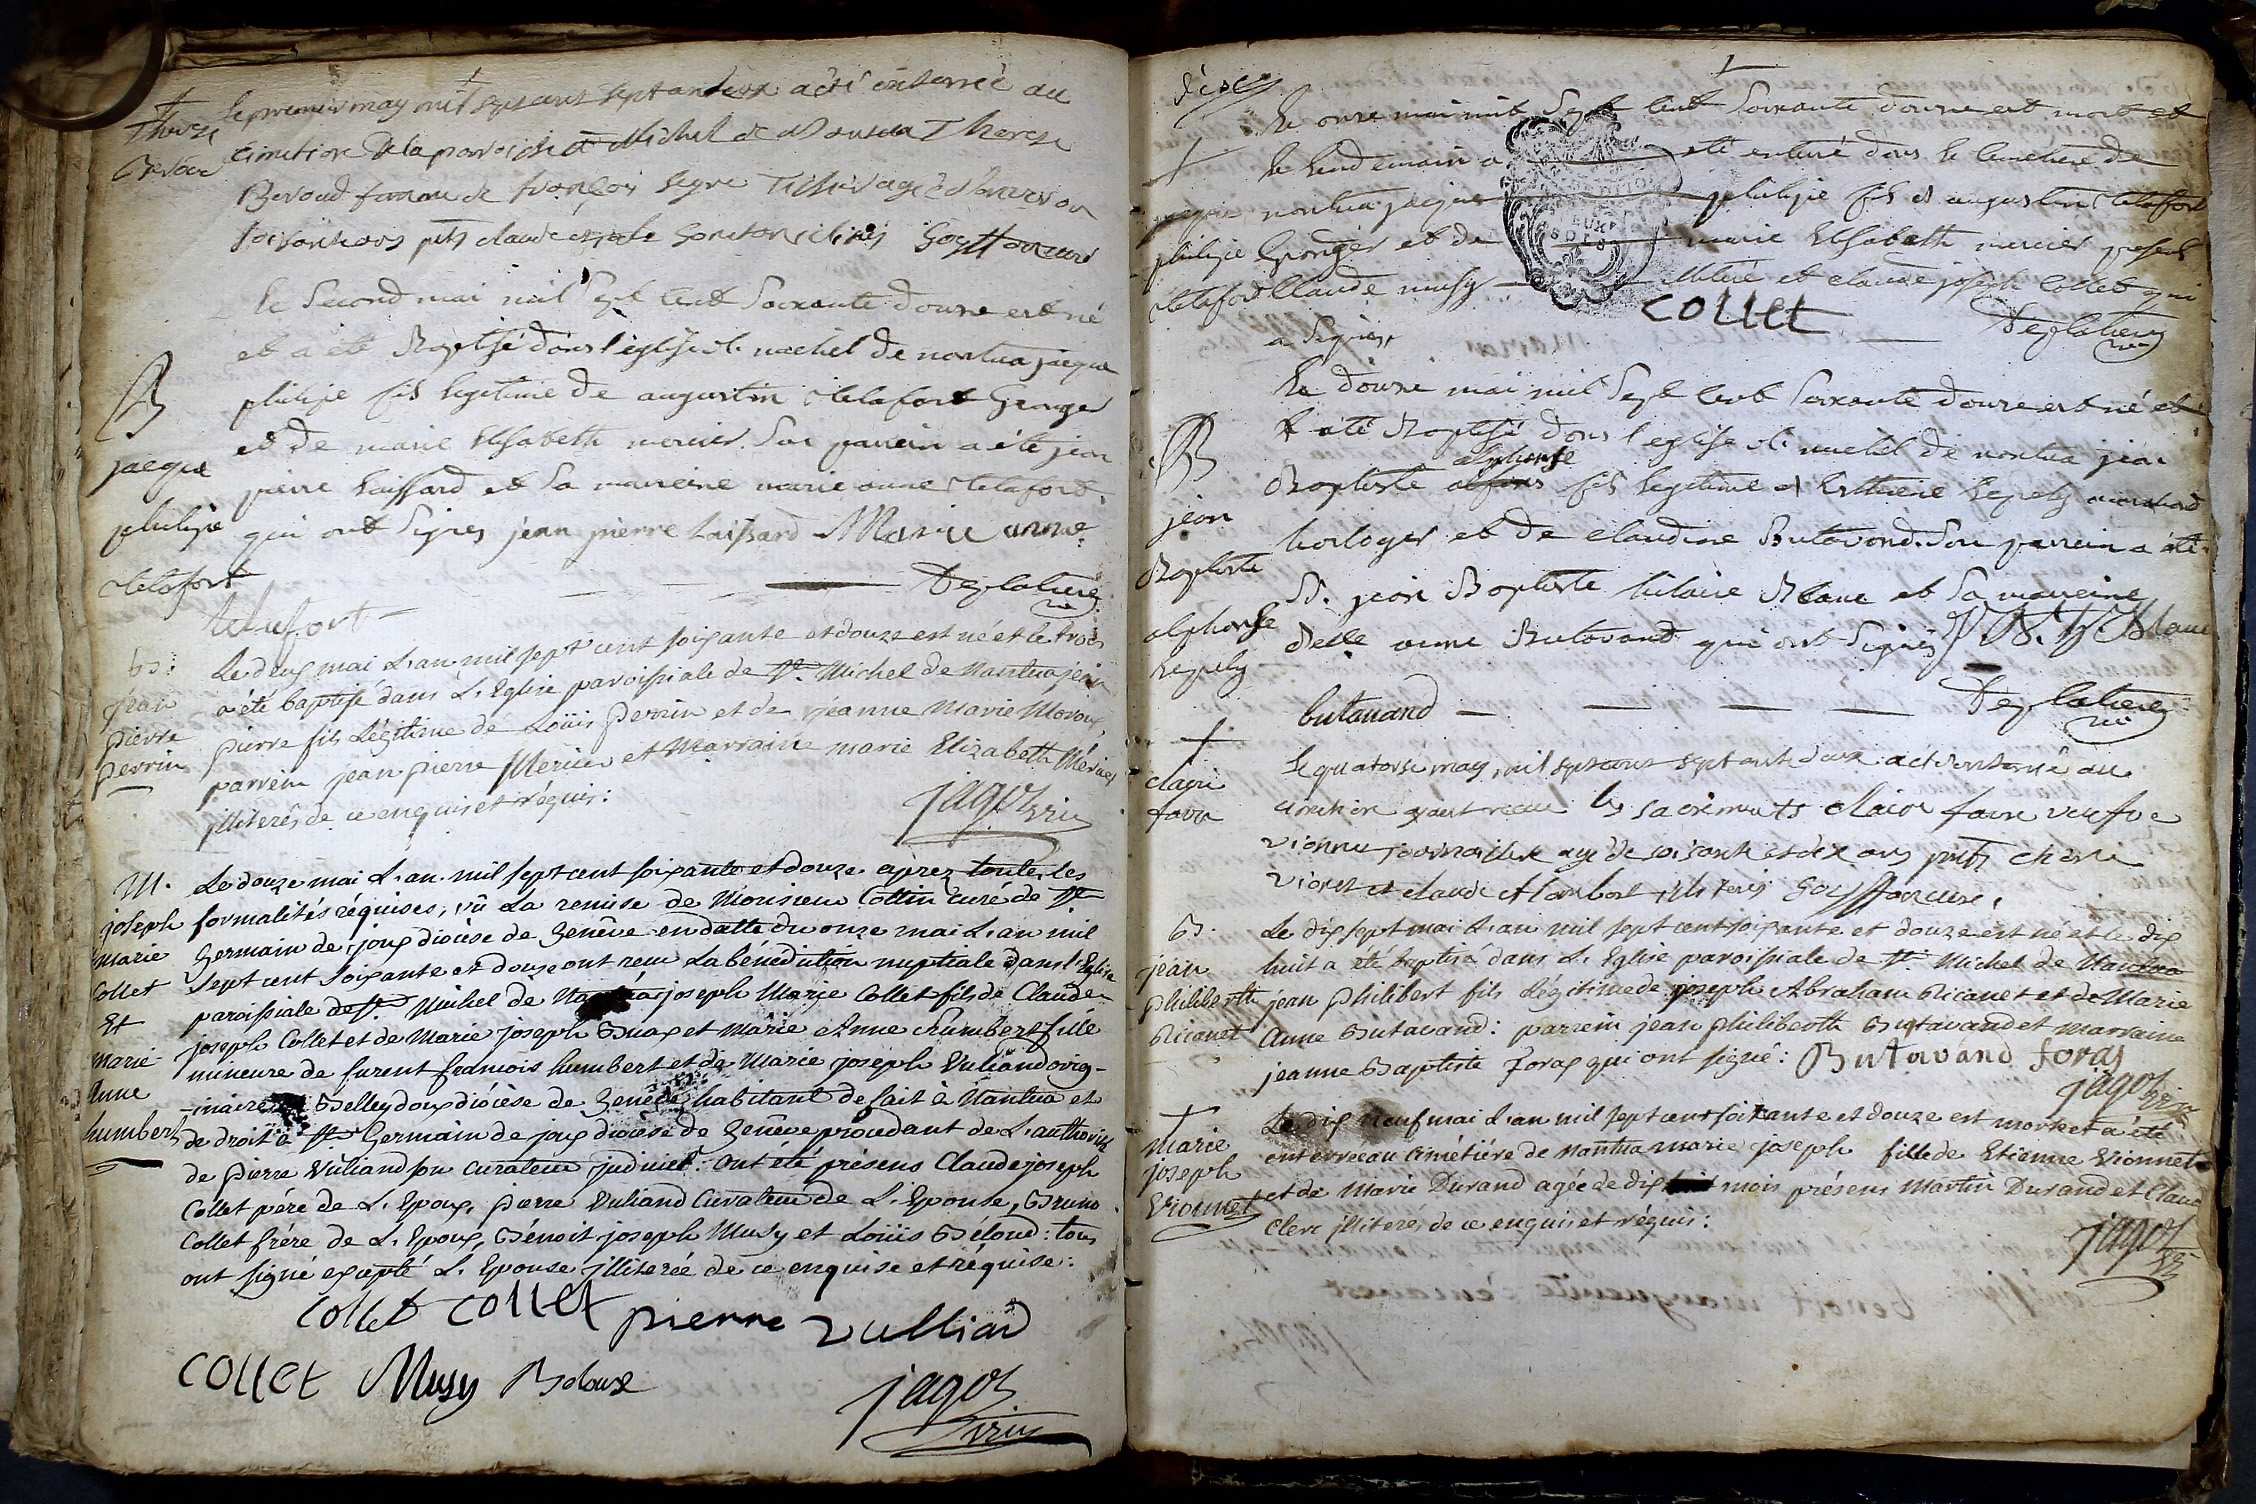 Therese
le premier may mil sept cent septante deux a été enterrée au
cimetiere de la paroisse st Michel de Nantua Therese
Beroud femme de françois
claude
Le second mai mil sept cent soixante douze est né
et a été Baptisé dans l'eglise st. michel de nantua jacque
philipe fils legitime de augustin Delafort horloger
et de marie Elisabeth mercier. Son parrein a été jean
pierre haissard et sa marreine marie anne Delafort.
qui ont signes jean pierre haissard Marie anne
B
jacque
philipe
Delafort
delafort
B:
jean
pierre
perrin
Le deux mai L'an mil sept cent soixante et douze est né et le trois
a été baptisé dans L'Eglise paroissiale de St. Michel de Nantua jean
pierre fils Légitime de Loüis perrin et de jeanne Marie Moroux
parrein jean pierre Mercier et Marraine marie Elizabeth Mércier
illiterés de ce enquis et réquis:
jagot vric
M.
joseph
marie
Collet
Et
marie
Anne
humbert
Le douze mai L'an mil sept cent soixante et douze aprez toutes les
formalités réquises, vû La remise de Monsieur Collin curé de St
Germain de joux diocèse de Genêve en datte du onze mai L'an mil
sept cent soixante et douze ont reçu La bénédiction nuptiale dans l'Eglise
paroissiale de St. Michel de Nantua joseph Marie Collet fils de Claude
joseph Collet et de Marie joseph Buax et Marie Anne humbert fille
mineure de furent francois humbert et de Marie joseph Vuliand orig-
-inaire de Belleydoux diocèse de Genêve habitant de fait à Nantua et
de droit à St Germain de joux diocèse de Genêve procedant de L'authorité
de pierre Vuliand son curateur judiciel. ont été présens Claude joseph
Collet pére de L'Epoux, pierre Vuliand Curateur de L'Epouse, Bruno
Collet frére de L'Epoux, Bénoit joseph Musy et Loüis Béloud: tous
ont signé excepté L'Epouse illiterée de ce enquise et réquise:
Collet Collet pierre vulliand
COLLET Musy
jagot
vric
Le onze mai mil sept cent soixante douze est mort et
le lendemain a été enterré dans le cimetiere de
nantua jacque philipe fils d augustin Delafort
horloger et de marie Elisabeth mercier presens
Claude musy illiteré et claude joseph Collet qui
a signés
COLLET
jacque
philipe
Delafort
Le douze mai mil sept cent soixante douze est né et
a été Baptisé dans l'eglise st. michel de nantua jean
alphonse
Baptiste fils legitime d
horloger et de claudine Butavand. Son parrein a été
Sr. jean Baptiste hilaire Blanc et sa marreine
delle anne Butavand qui ont signés J B. h Blanc
butavand
B
jean
Baptiste
alphonse
Le quatorse may mil sept cent septante deux a été enterré au
cimetiere ayant recue les sacrements claire favre veufve
vionnet journaliere agé de soisante et dix ans
vionet et claude
claire
favre
B.
jean
philiberth
Ricanet
Le dix sept mai L'an mil sept cent soixante et douze est né et le dix
huit a été baptisé dans L'Eglise paroissiale de St. Michel de Nantua
jean philibert fils Légitime de joseph Abraham Ricanet et de Marie
Anne Butavand: parrein jean philiberth Butavand et marraine
jeanne Baptiste foras qui ont signé: Butavand foras
jagot vric
marie
joseph
Vionnet
Le dix neuf mai L'an mil sept cent soixante et douze est morte et a été
enterrée au cimétiére de nantua marie joseph fille de Etienne Vionnet
et de Marie Durand agée de dix mois présens Martin Durand et Claude
Clerc illiterés de ce enquis et réquis:
jagot